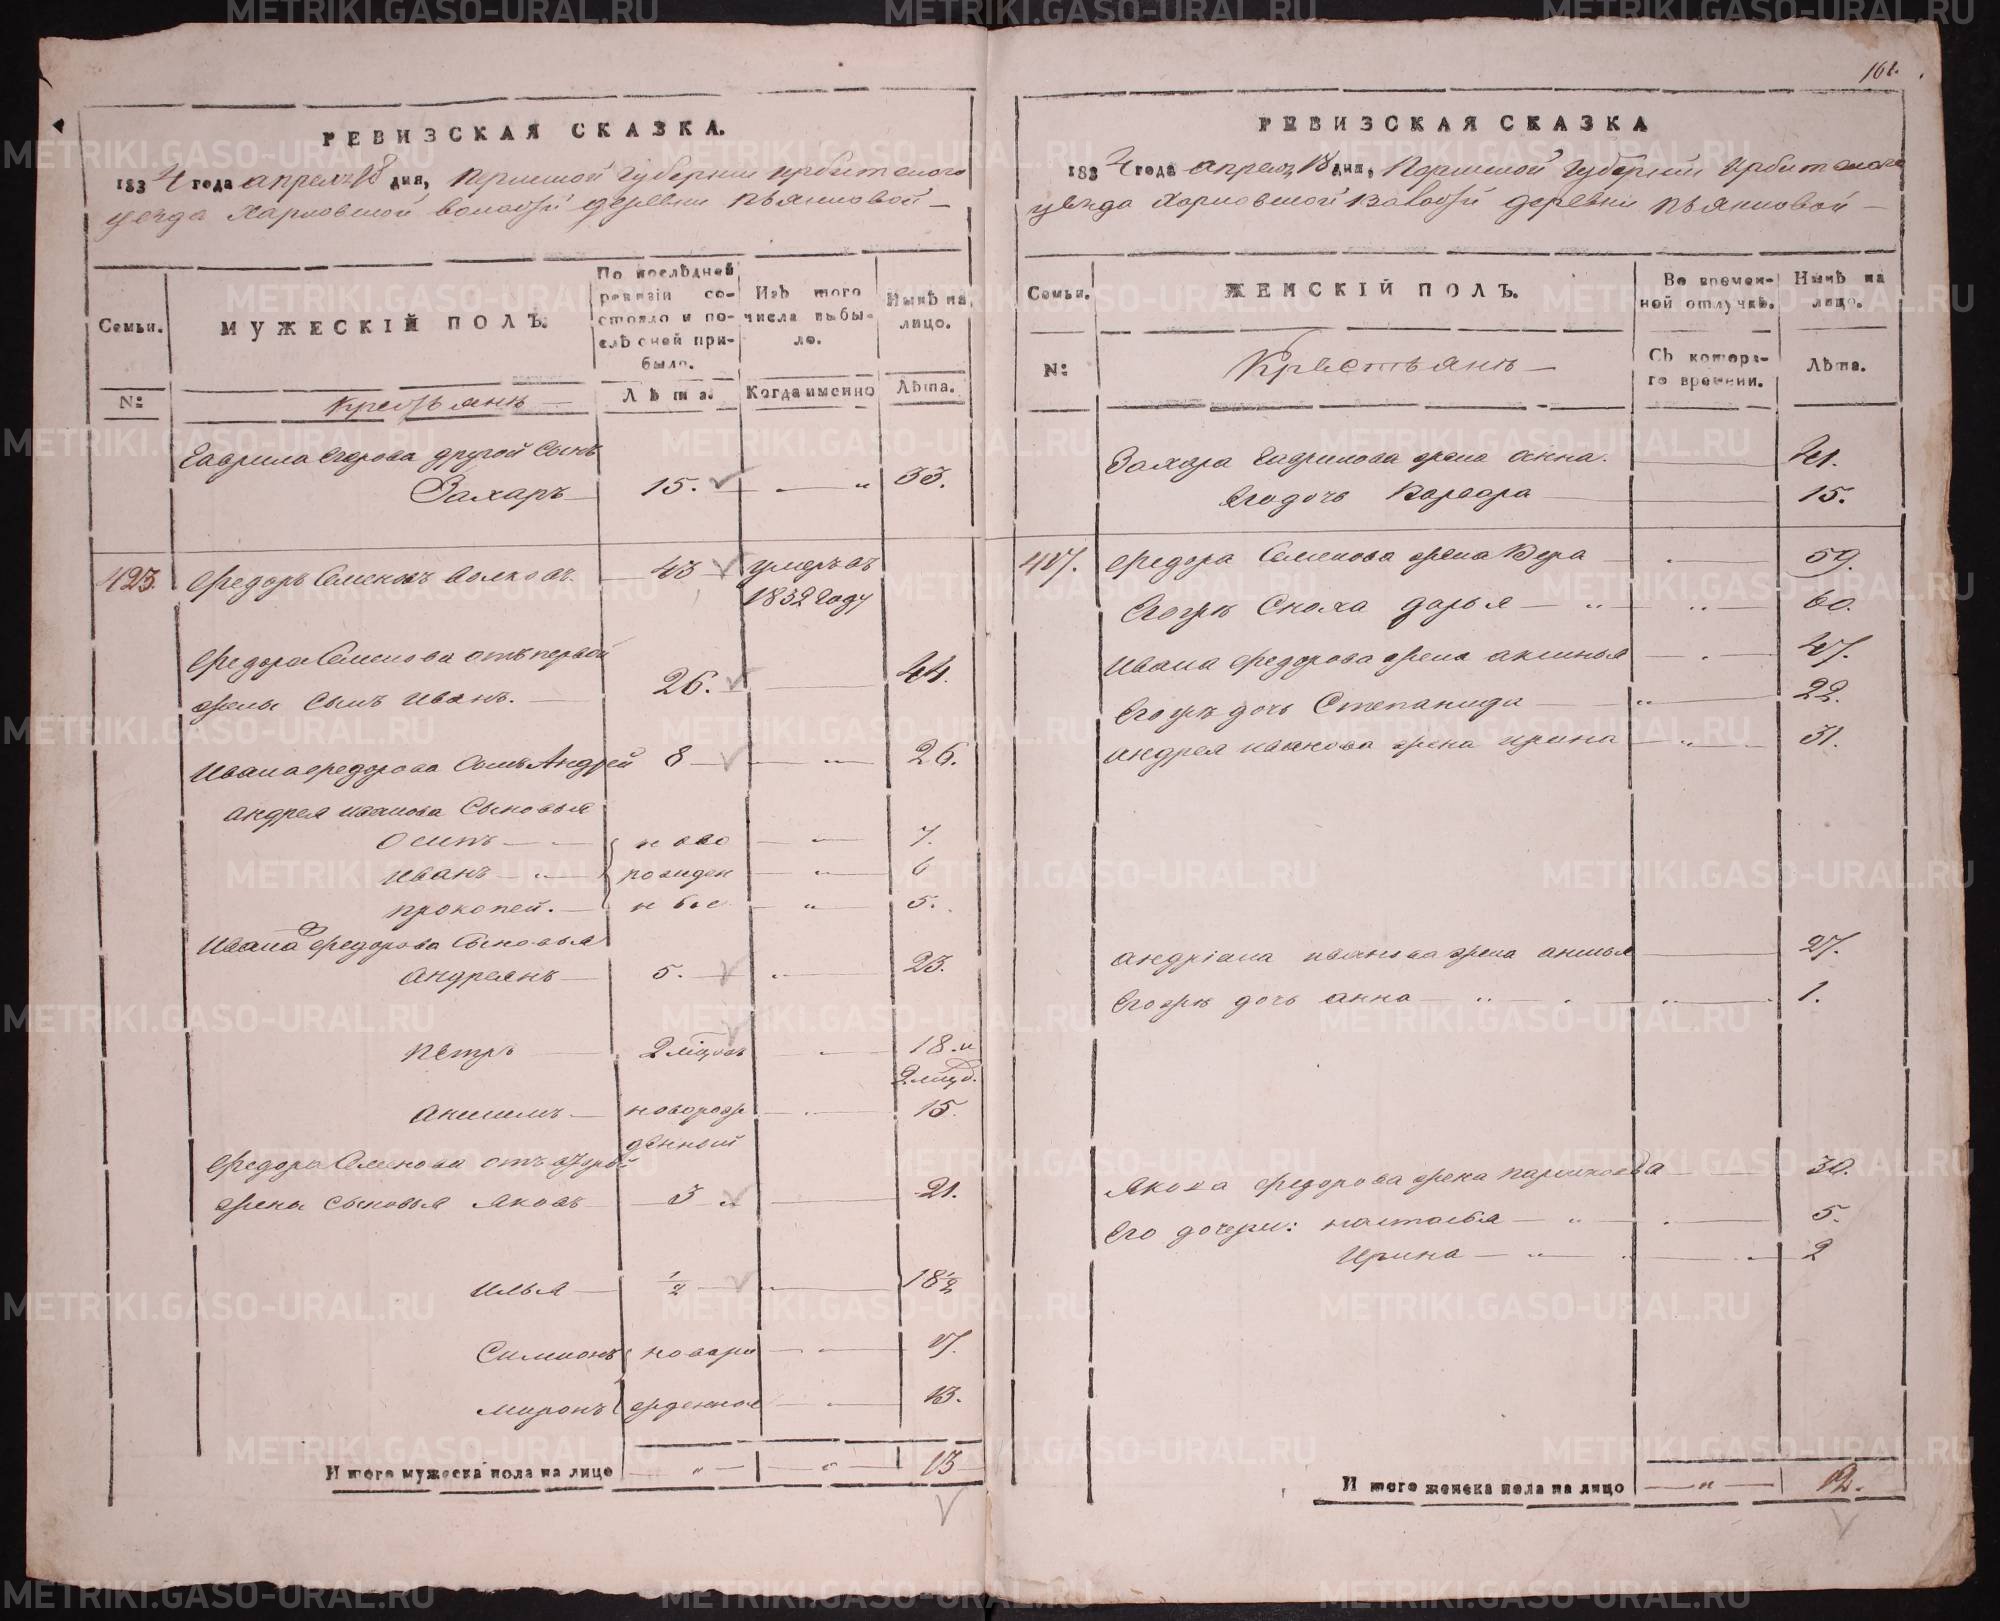 162.
РЕВИЗСКАЯ СКАЗКА.
1834 года апреля 18 дня, Пермской Губернии Ирбитского
уезда Харловской волости деревни Пьянковой —
Семьи.
МУЖЕСКІЙ ПОЛЪ.
По послѣдней ревизіи состояло и послѣ оней прибыло.
Изъ того числа выбыло.
Нынѣ на лицо.
№:
Крестьянъ —
Лѣта.
Когда именно
Лѣта.
Гаврила Егорова другой сынъ
Захаръ — 15. — „ 33.
423. Федоръ Семеновъ Волковъ. — 43 — умеръ въ
1832 году
Федора Семенова отъ первой
жены сынъ Иванъ. — 26. — 44.
Ивана Федорова сынъ Андрей 8 — „ — 26.
Андрея Иванова сыновья
Осипъ — ново — „ — 7.
Иванъ — „ — рожден — „ — 6
Прокопей. — ные — „ — 5.
Ивана Федорова сыновья
Андреянъ — 5. — „ — 23.
Петръ — 2 мѣцовъ — 18. и
2 мѣцо.
Анисимъ — новорож — 15.
денный
Федора Семенова отъ второй
жены сыновья Яковъ — 3 — 21.
Илья — 1/2 — 18 1/2
Симионъ новоро — „ — 17.
Миронъ жденные — „ — 13.
Итого мужеска пола на лице — „ — „ — 13
РЕВИЗСКАЯ СКАЗКА
1834 года апреля 18 дня, Пермской Губернии Ирбитского
уезда Харловской волости деревни Пьянковой —
Семьи.
ЖЕНСКІЙ ПОЛЪ.
Во временной отлучкѣ.
Нынѣ на лицо.
№:
Крестьянъ —
Съ котораго времени.
Лѣта.
Захара Гаврилова жена Анна. — 41.
Его дочь Варвара — 15.
417. Федора Семенова жена Вера — 59.
Его жъ сноха Дарья — „ — „ — 60.
Ивана Федорова жена Аксинья — 47.
Его жъ дочь Степанида — „ — 22.
Андрея Иванова жена Ирина — „ — 31.
Андріана Иванова жена Анисья — 27.
Его жъ дочь Анна — „ — 1.
Якова Федорова жена Парасковья — 30.
Его дочери: Настасья — „ — 5.
Ирина — „ — 2
Итого женска пола на лицо — „ — 12.
METRIKI.GASO-URAL.RU